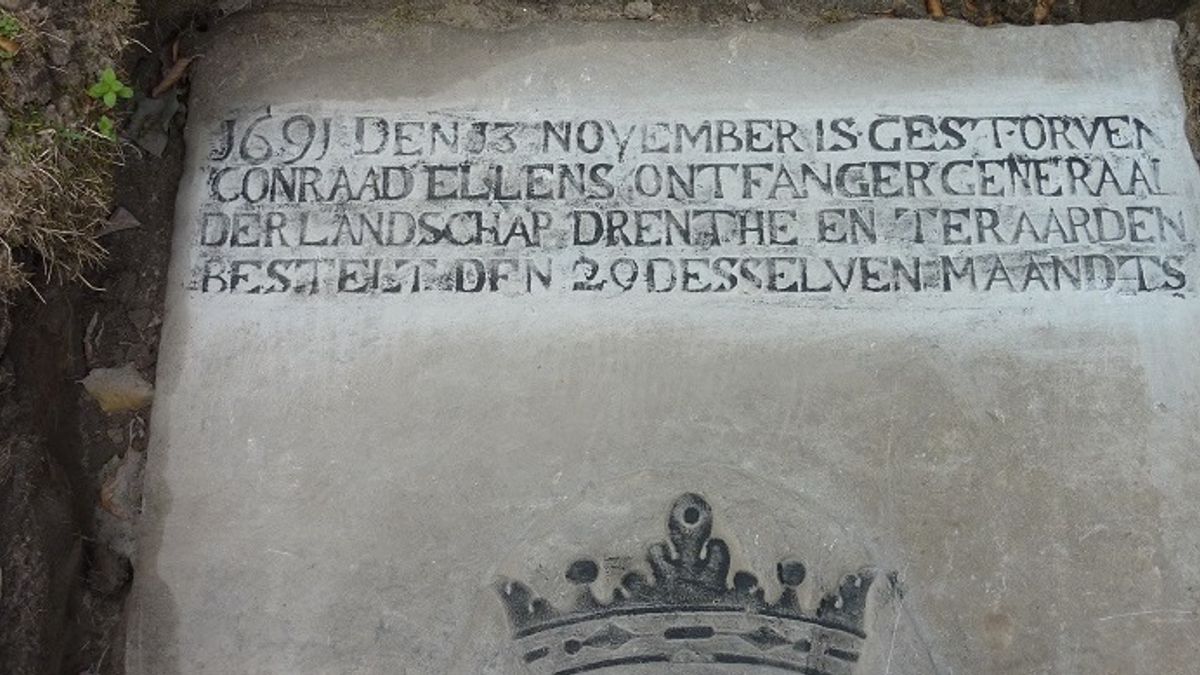 1691 DEN 13 NOVEMBER IS GESTORVEN
CONRAAD ELLENS ONTFANGER GENERAAL
DER LANDSCHAP DRENTHE EN TER AARDEN
BESTELT DEN 20 DESSELVEN MAANDTS